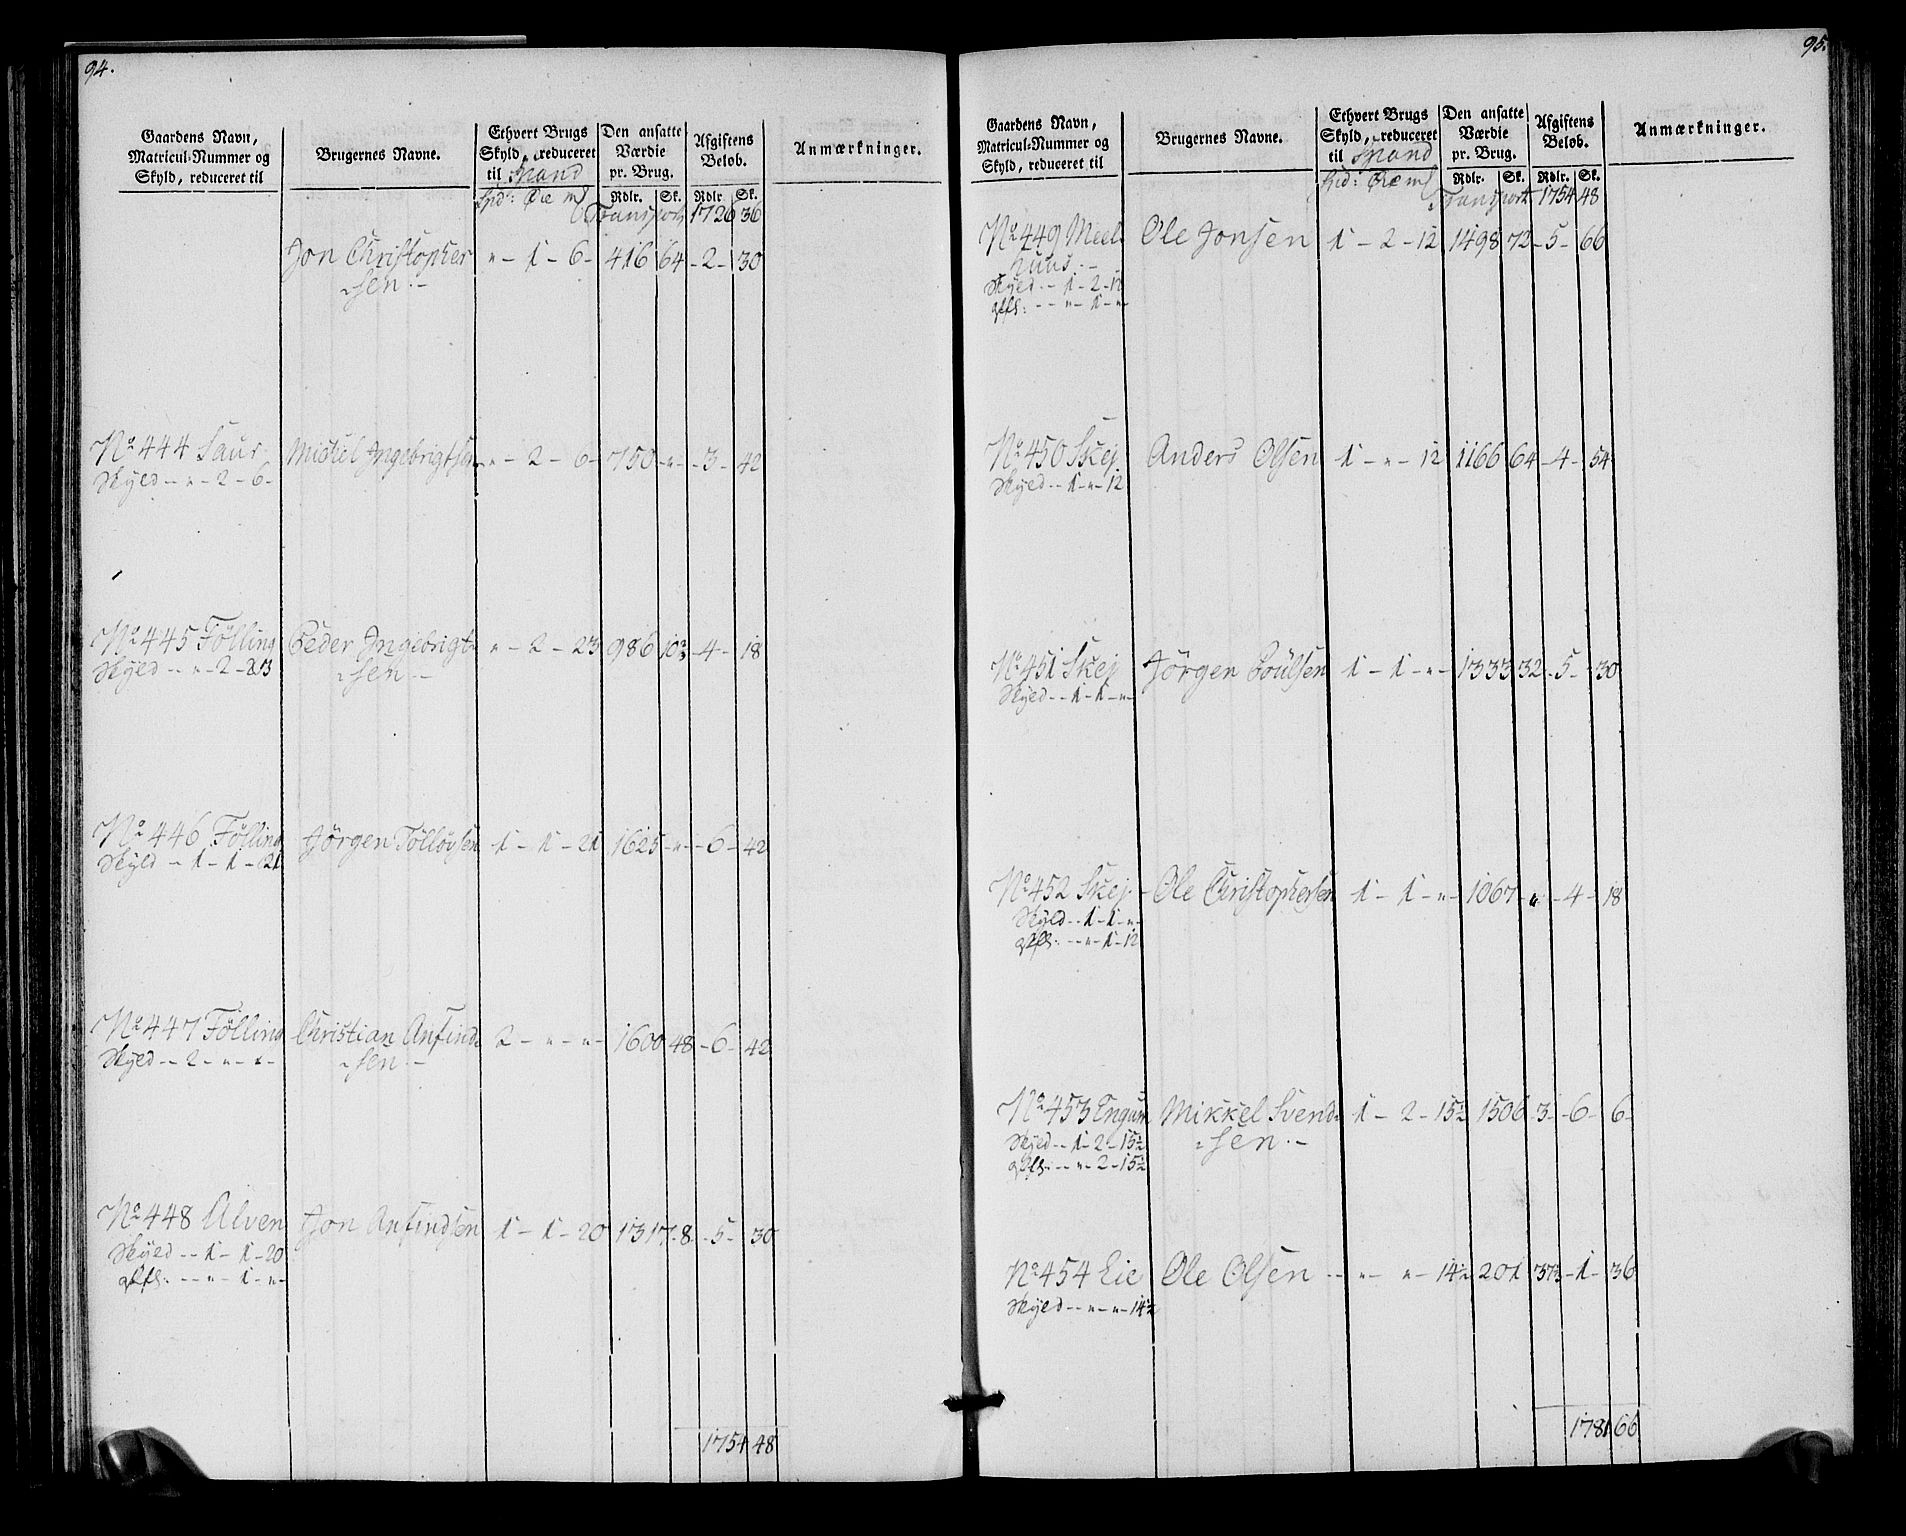 94.
Gaardens Navn, Matricul-Nummer og Skyld, reduceret til
Brugernes Navne.
Ethvert Brugs Skyld, reduceret til Spand
Den ansatte Værdie pr. Brug.
Afgiftens Beløb.
Anmærkninger.
Spd: Øre ml
Rdlr. Sk. Rdlr. Sk.
Transport 1726 36
Jon Christopher 〃 - 1 - 6 - 416 64 - 2 - 30
-sen.-
No 444 Saur Mickel Ingebrigtsen 〃 - 2 - 6 - 750 - 〃 - 3 - 42
Skyld - 〃 - 2 - 6 -
No 445 Følling Peder Ingebrigt- 〃 - 2 - 23 986 10 - 4 - 18
Skyld - - 〃 - 2 - 23 -sen.-
No 446 Følling Jørgen Tølløvsen 1 - 1 - 21 1625 - 〃 - 6 - 42
Skyld - 1 - 1 - 21
No 447 Følling Christian Anfind- 2 - 〃 - 〃 - 1600 48 - 6 - 42
Skyld - 2 - 〃 - 〃 - -sen.-
No 448 Alven Jon Anfindsen 1 - 1 - 20 1317 8 - 5 - 30
Skyld - - 1 - 1 - 20
- - 〃 - 1 - 〃 -
1754 48
95.
Gaardens Navn, Matricul-Nummer og Skyld, reduceret til
Brugernes Navne.
Ethvert Brugs Skyld, reduceret til Spand
Den ansatte Værdie pr. Brug.
Afgiftens Beløb.
Anmærkninger.
Spd: Øre ml
Rdlr. Sk. Rdlr. Sk.
Transport 1754 48
No 449 Meel- Ole Jonsen 1 - 2 - 12 1498 72 - 5 - 66
huus.-
Skyld - 1 - 2 - 12
- - 〃 - 1 - 〃 -
No 450 Skej Anders Olsen 1 - 〃 - 12 1166 64 - 4 - 54
Skyld - - 1 - 〃 - 12
No 451 Skej Jørgen Poulsen 1 - 1 - 〃 - 1333 32 - 5 - 30
Skyld - - 1 - 1 - 〃 -
No 452 Skej - Ole Christophersen 1 - 1 - 〃 - 1067 - 〃 - 4 - 18
Skyld - - 1 - 1 - 〃 -
- - 〃 - 1 - 12
No 453 Engum Mikkel Svend- 1 - 2 - 15½ 1506 3 - 6 - 6 -
Skyld - - 1 - 2 - 15½ -sen.-
- - 〃 - 2 - 15½
No 454 Eie Ole Olsen - - 〃 - 〃 - 14½ 201 37 - 1 - 36
Skyld - - 〃 - 〃 - 14½
1781 66